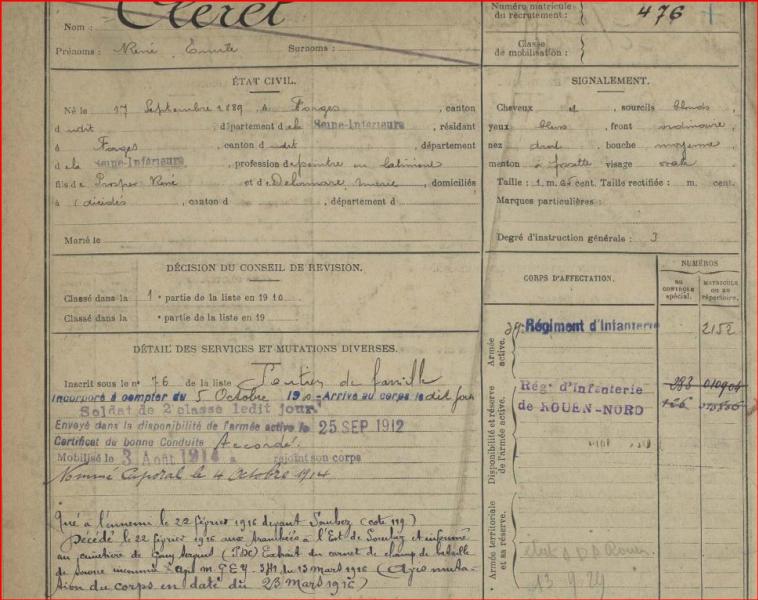 Nom : Cleret
Prénoms : René Emile Surnoms :
ÉTAT CIVIL.
Né le 17 Septembre 1889, à Forges, canton
dudit, département de la Seine-Inférieure, résidant
à Forges, canton dudit département
de la Seine-Inférieure, profession de peintre en batiment
fils de Prosper René et de Delamare, Marie, domiciliés
à (décédés, canton d , département d
Marié le
DÉCISION DU CONSEIL DE REVISION.
Classé dans la 1e partie de la liste en 1910
Classé dans la e partie de la liste en 19
DÉTAIL DES SERVICES ET MUTATIONS DIVERSES.
Inscrit sous le no 76 de la liste Soutien de famille
Incorporé à compter du 5 Octobre 19 Arrivé au corps le dit jour
Soldat de 2 classe ledit jour
Envoyé dans la disponibilité de l'armée active le 25 SEP 1912
Certificat de bonne Conduite Accordé.
Mobilisé le 3 Août 1914 a rejoint son corps
Nommé Caporal le 4 Octobre 1914
Tué à l'ennemi le 22 février 1916 devant Souchez (cote 119)
Décédé le 22 février 1916 aux tranchées à l'Est de Souchez et inhumé
au cimetière de (PDC) Extrait du carnet de champ de bataille
du 13 Mars 1916 (Avis muta-
tion du corps en date du 23 Mars 1916)
Numéro matricule
du recrutement : 476
Classe
de mobilisation :
SIGNALEMENT.
Cheveux et sourcils blonds,
yeux bleus, front ordinaire,
nez droit, bouche moyenne,
menton à fossette visage ovale
Taille : 1 m. 65 cent. Taille rectifiée : m. cent.
Marques particulières :
Degré d'instruction générale : 3
CORPS D'AFFECTATION.
NUMÉROS
AU CONTRÔLE spécial.
MATRICULE OU AU répertoire.
Armée active.
39 Régiment d'Infanterie
Disponibilité et réserve de l'armée active.
Rég. d'Infanterie
de ROUEN-NORD
Armée territoriale et sa réserve.
13.9.29